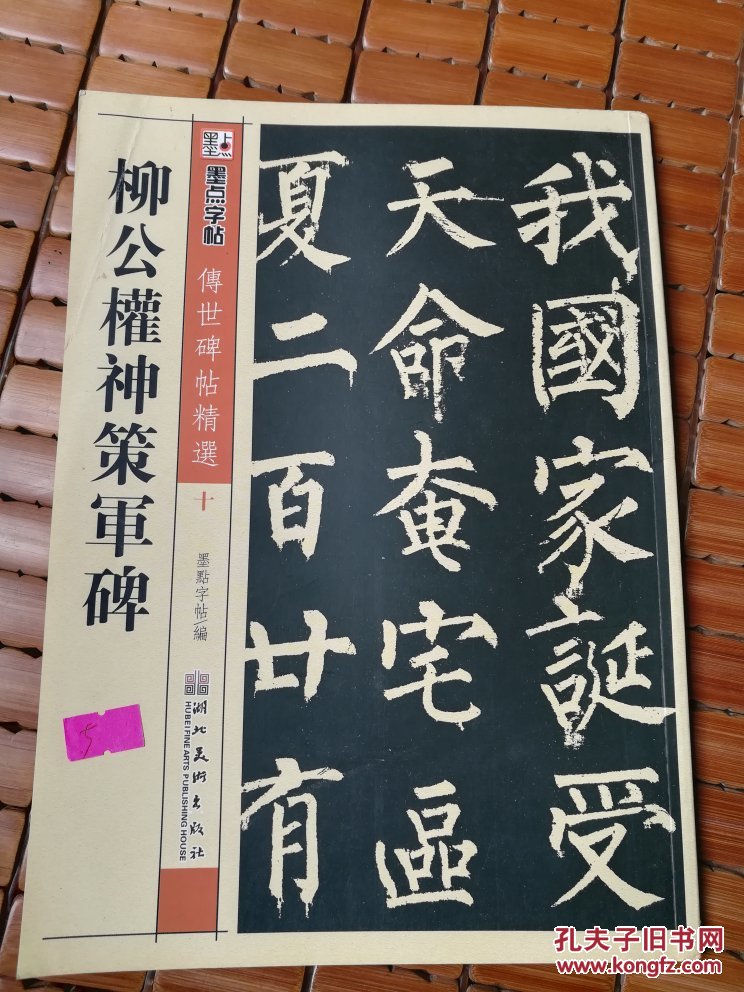 柳公權神策軍碑
墨点
墨点字帖
傳世碑帖精選
十
墨點字帖/編
湖北美術出版社
HUBEI FINE ARTS PUBLISHING HOUSE
我國家誕受
天命奄宅區
夏二百廿有
5
孔夫子旧书网
www.kongfz.com